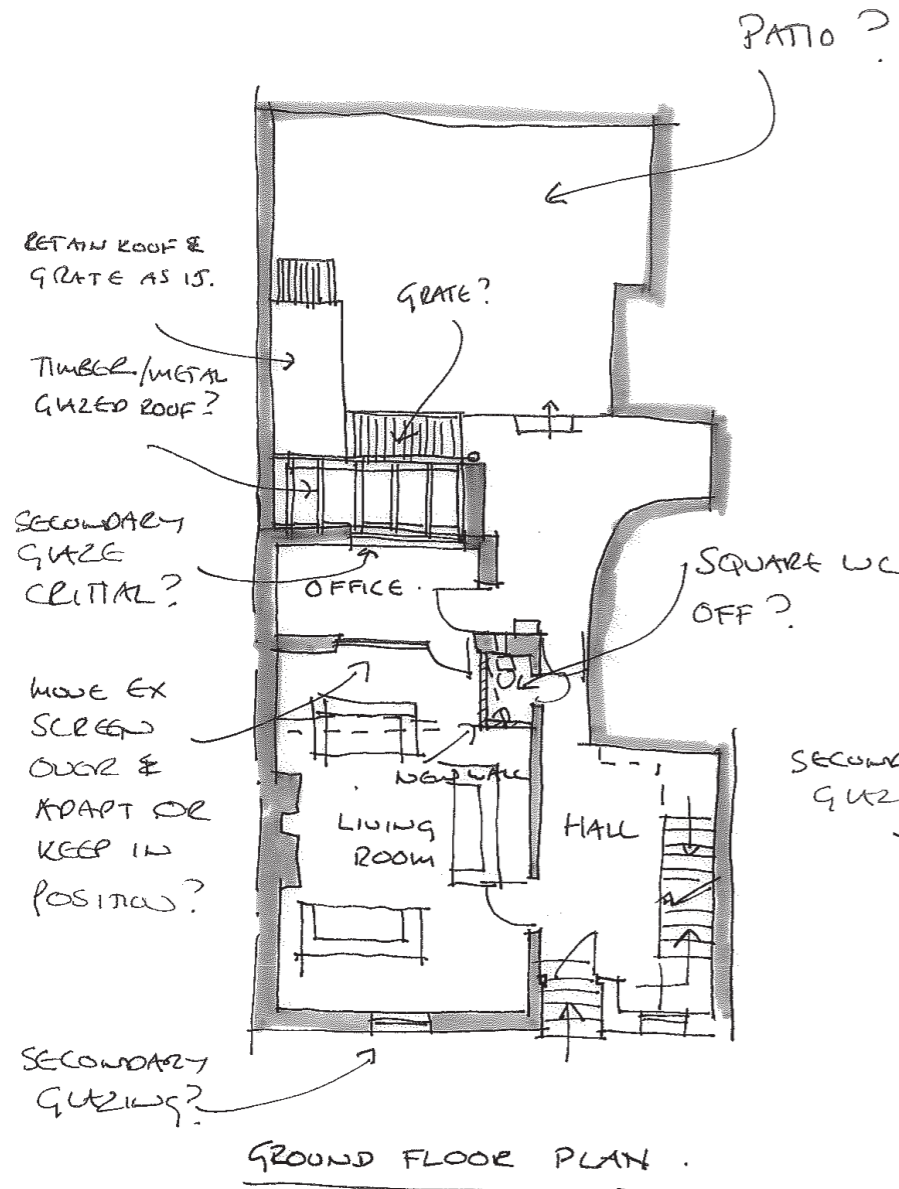 PATIO ?
RETAIN ROOF &
GRATE AS IS.
GRATE?
TIMBER/METAL
GLAZED ROOF?
SECONDARY
GLAZE
CRITTAL?
OFFICE.
SQUARE WC
OFF ?
MOVE EX
SCREEN
OVER &
ADAPT OR
KEEP IN
POSITION?
NEW WALL
LIVING
ROOM
HALL
SECOND
GLAZ
SECONDARY
GLAZING?
GROUND FLOOR PLAN .